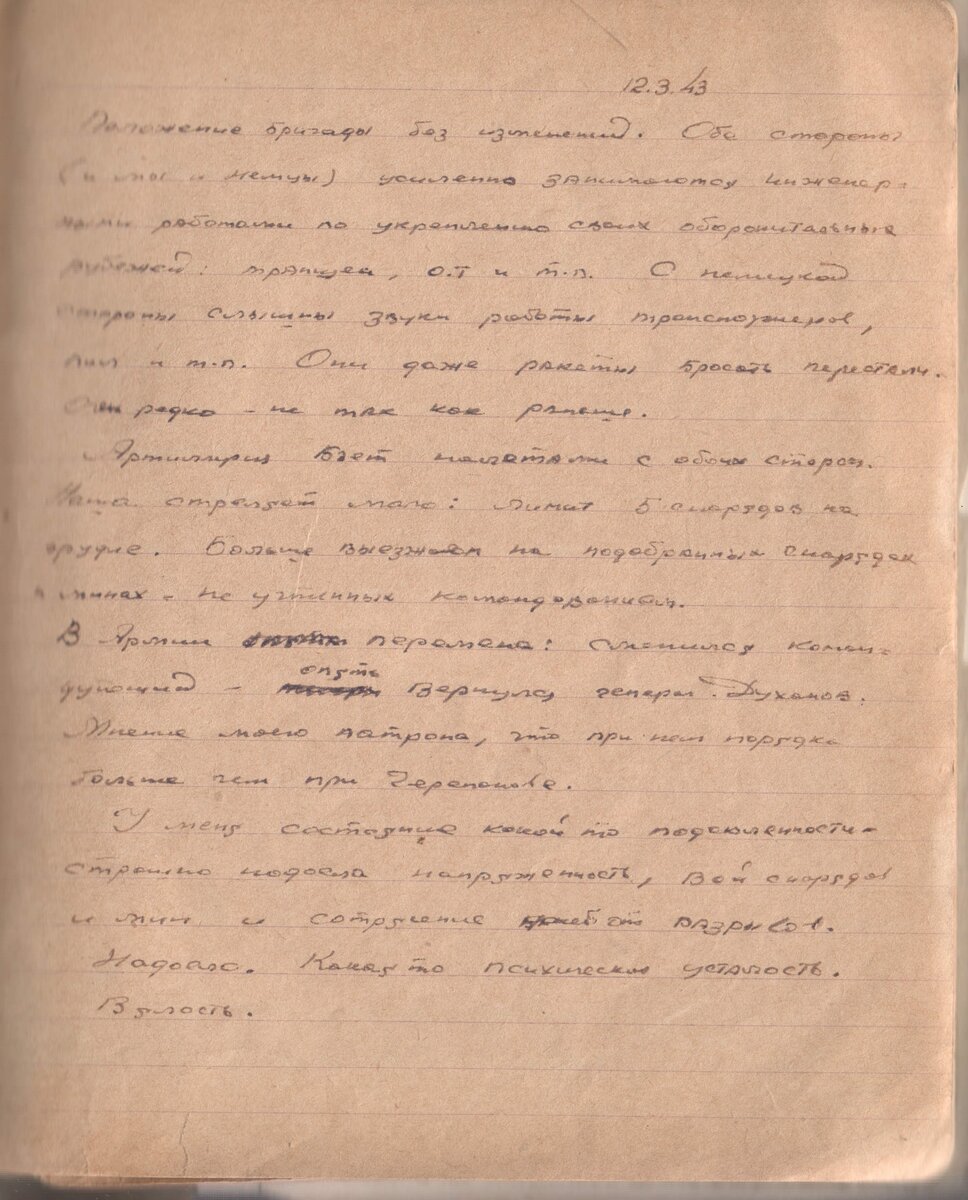 12.3.43
Положение бригады без изменений. Обе стороны
(и мы и немцы) усиленно занимаются инженер-
ными работами по укреплению своих оборонительные
рубежей: траншеи, О.Т и т.п. С немецкой
стороны слышны звуки работы
пил и т.п. Они даже ракеты бросать перестали.
Очен редко - не так как раньше.
Артиллерия бьет налетами с обоих сторон.
Наша стреляет мало: лимит 5 снарядов на
орудие. Больше выезжаем на подобранных снарядах
и минах - не учтенных командованием.
В Армии перемена: сменился коман-
дующий - опять вернулся генерал Духанов.
Мнение моего патрона, что при нем порядка
больше чем при Черепанове.
У меня состояние какой то подавленности -
страшно надоела напряженность, вой снарядов
и мин и сотрясение от разрывов.
Надоело. Какая то психическая усталость.
Вялость.